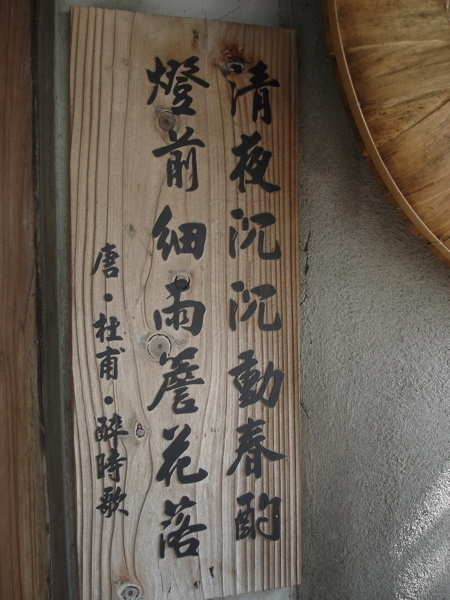 清夜沉沉動春酌
燈前細雨簷花落
唐・杜甫・醉時歌